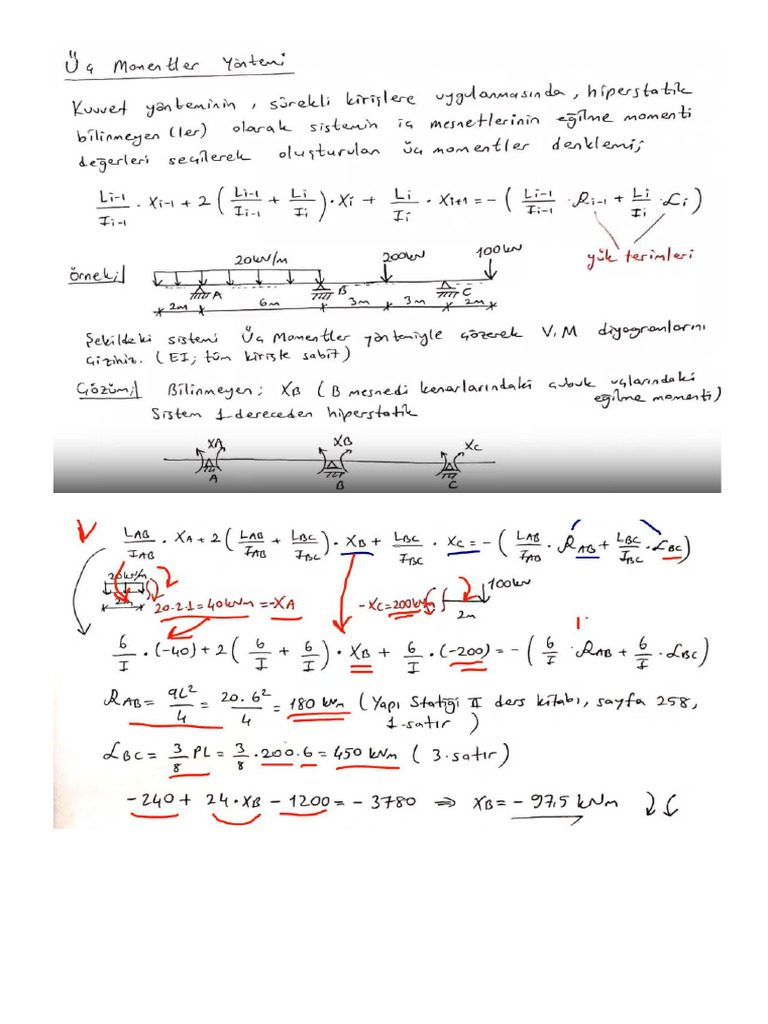 Üç Momentler Yöntemi
Kuvvet yönteminin, sürekli kirişlere uygulanmasında, hiperstatik
bilinmeyen(ler) olarak sistemin iç mesnetlerinin eğilme momenti
değerleri seçilerek oluşturulan üç momentler denklemi;
Li-1/Ii-1 · Xi-1 + 2(Li-1/Ii-1 + Li/Ii) · Xi + Li/Ii · Xi+1 = -(Li-1/Ii-1 · ℛi-1 + Li/Ii · ℒi)
yük terimleri
20kN/m 200kN 100kN
Örnek;
A B C
2m 6m 3m 3m 2m
Şekildeki sistemi Üç Momentler yöntemiyle çözerek V, M diyagramlarını
çiziniz. (EI; tüm kirişte sabit)
Çözüm; Bilinmeyen; XB (B mesnedi kenarlarındaki çubuk uçlarındaki
eğilme momenti)
Sistem 1. dereceden hiperstatik
XA XB XC
A B C
LAB/IAB · XA + 2(LAB/IAB + LBC/IBC) · XB + LBC/IBC · XC = -(LAB/IAB · ℛAB + LBC/IBC · ℒBC)
20kN/m 100kN
2m 20·2·1=40kNm=-XA -XC=200kNm 2m
6/I · (-40) + 2(6/I + 6/I) · XB + 6/I · (-200) = -(6/I · ℛAB + 6/I · ℒBC)
ℛAB = qL²/4 = 20·6²/4 = 180 kNm (Yapı Statiği II ders kitabı, sayfa 258,
1. satır)
ℒBC = 3/8 PL = 3/8 · 200·6 = 450 kNm (3. satır)
-240 + 24·XB - 1200 = -3780 ⇒ XB = -97,5 kNm